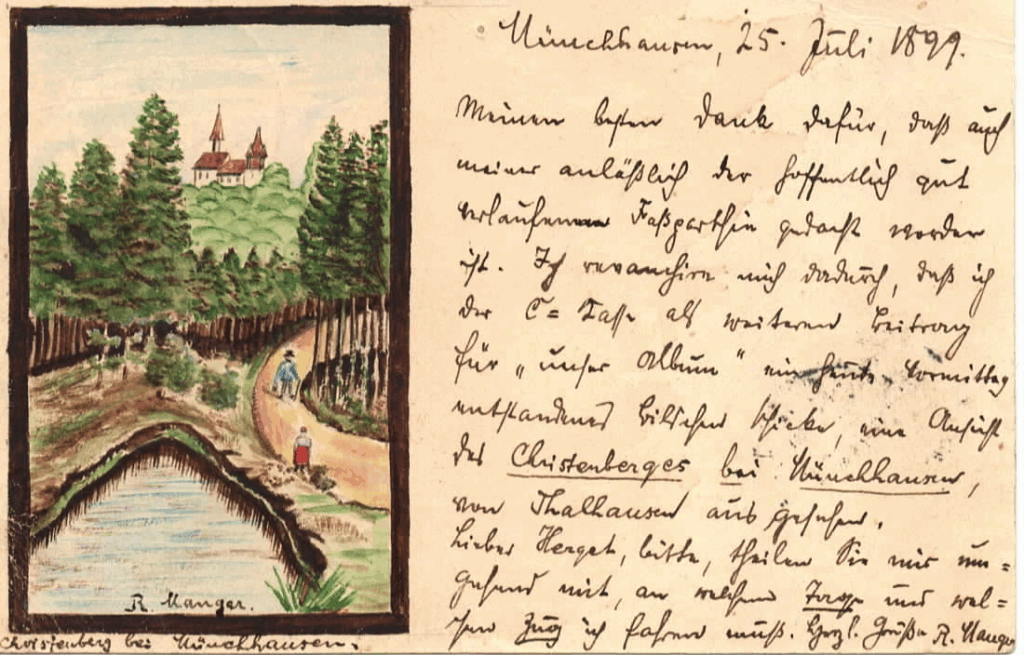 Münchhausen, 25. Juli 1899.
Meinen besten Dank dafür, daß auch
meiner anläßlich der hoffentlich gut
verlaufenen gedacht worden
ist. Ich revanchire mich dadurch, daß ich
der C= als weiteren Beitrag
für „unser Album“ ein heute Vormittag
entstandenes Bildchen schicke, eine Ansicht
des Christenberges bei Münchhausen,
von Thalhausen aus gesehen.
Lieber Herget, bitte, theilen Sie mir um=
gehend mit, an welchem Tage und wel=
chen Zug ich fahren muß. Herzl. Grüße R. Manger
R. Manger.
Christenberg bei Münchhausen.